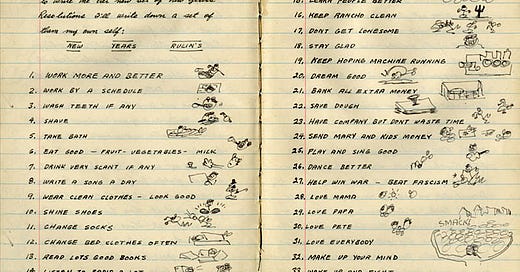 Resolutions I'll write down a set of
them my own self:
NEW YEARS RULIN'S
1. WORK MORE AND BETTER
2. WORK BY A SCHEDULE
3. WASH TEETH IF ANY
4. SHAVE
5. TAKE BATH
6. EAT GOOD - FRUIT - VEGETABLES - MILK
7. DRINK VERY SCANT IF ANY
8. WRITE A SONG A DAY
9. WEAR CLEAN CLOTHES - LOOK GOOD
10. SHINE SHOES
11. CHANGE SOCKS
12. CHANGE BED CLOTHES OFTEN
13. READ LOTS GOOD BOOKS
14. LISTEN TO RADIO A LOT
15. LEARN PEOPLE BETTER
16. KEEP RANCHO CLEAN
17. DONT GET LONESOME
18. STAY GLAD
19. KEEP HOPING MACHINE RUNNING
20. DREAM GOOD
21. BANK ALL EXTRA MONEY
22. SAVE DOUGH
23. HAVE COMPANY BUT DONT WASTE TIME
24. SEND MARY AND KIDS MONEY
25. PLAY AND SING GOOD
26. DANCE BETTER
27. HELP WIN WAR - BEAT FASCISM
28. LOVE MAMA
29. LOVE PAPA
30. LOVE PETE
SMACK!
31. LOVE EVERYBODY
32. MAKE UP YOUR MIND
33. WAKE UP AND FIGHT